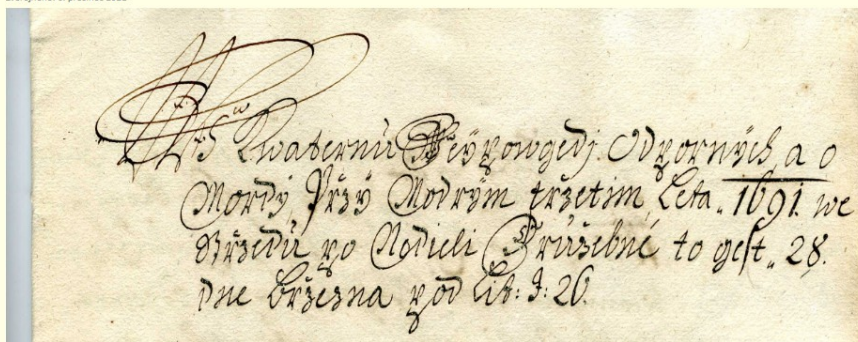 Kwaternů Weÿpowgedj Odpornÿch a o
Mordÿ Pržÿ Modrÿm tržetim Leta 1691. we
Stržedů po Nedieli Drůžebné to gest 28.
dne Bržezna pod Lit: J: 26.